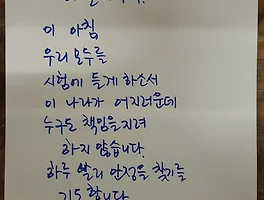 이 아침
우리 모두를
시험에 들게 하소서
이 나라가 어지러운데
누구도 책임을 지려
하지 않습니다.
하루 빨리 안정을 찾기를
기도합니다